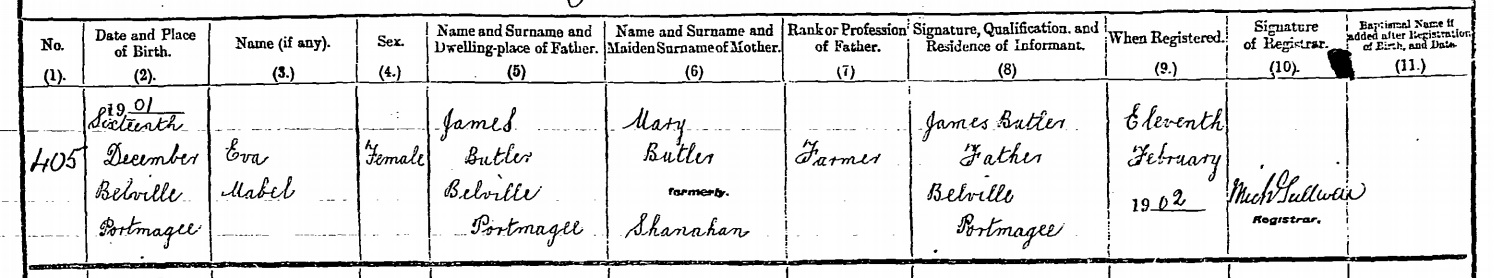 No.
(1).
Date and Place
of Birth.
(2).
Name (if any).
(3.)
Sex.
(4.)
Name and Surname and
Dwelling-place of Father.
(5)
Name and Surname and
Maiden Surname of Mother.
(6)
Rank or Profession
of Father.
(7)
Signature, Qualification, and
Residence of Informant.
(8)
When Registered.
(9.)
Signature
of Registrar.
(10).
Baptismal Name if
added after Registration
of Birth, and Date.
(11.)
405
1901
Sixteenth
December
Belville
Portmagee
Eva
Mabel
Female
James
Butler
Belville
Portmagee
Mary
Butler
formerly.
Shanahan
Farmer
James Butler
Father
Belville
Portmagee
Eleventh
February
1902
Registrar.